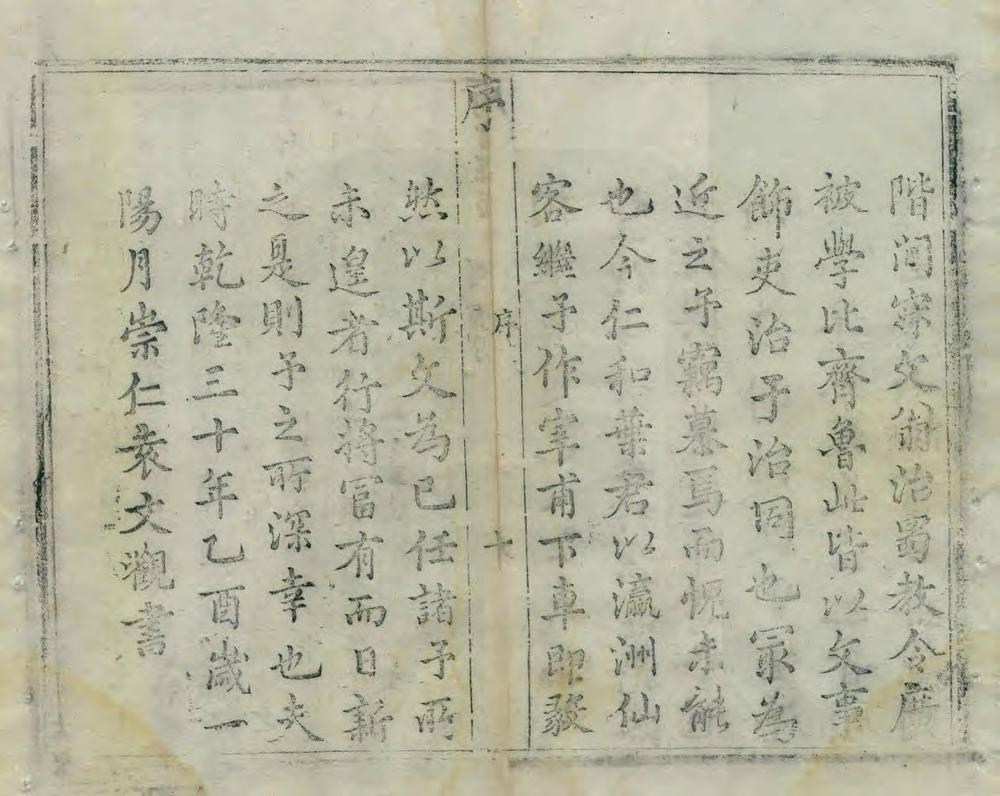 階間寀文翁治蜀教令廣
被學比齊魯此皆以文事
飾吏治予治同也冣為
近之予竊慕焉而愧未能
也今仁和葉君以瀛洲仙
客繼予作宰甫下車即發
序
序
十
然以斯文為已任諸予所
未遑者行將富有而日新
之是則予之所深幸也夫
時乾隆三十年乙酉歲一
陽月崇仁袁文觀書